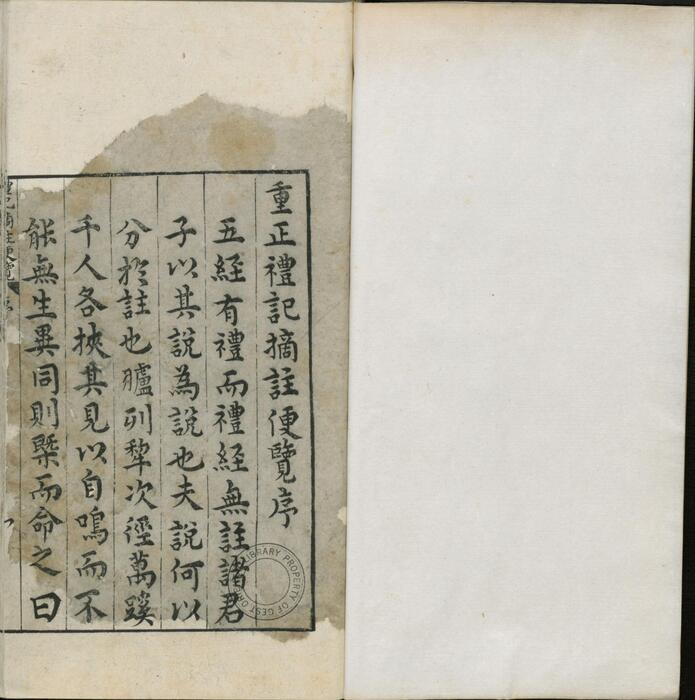 重正禮記摘註便覽序
五經有禮而禮經無註諸君
子以其說為說也夫說何以
分於註也臚列犂次徑萬蹊
千人各挾其見以自鳴而不
能無生異同則槩而命之曰
禮記摘註便覽
LIBRARY PROPERTY OF GEST